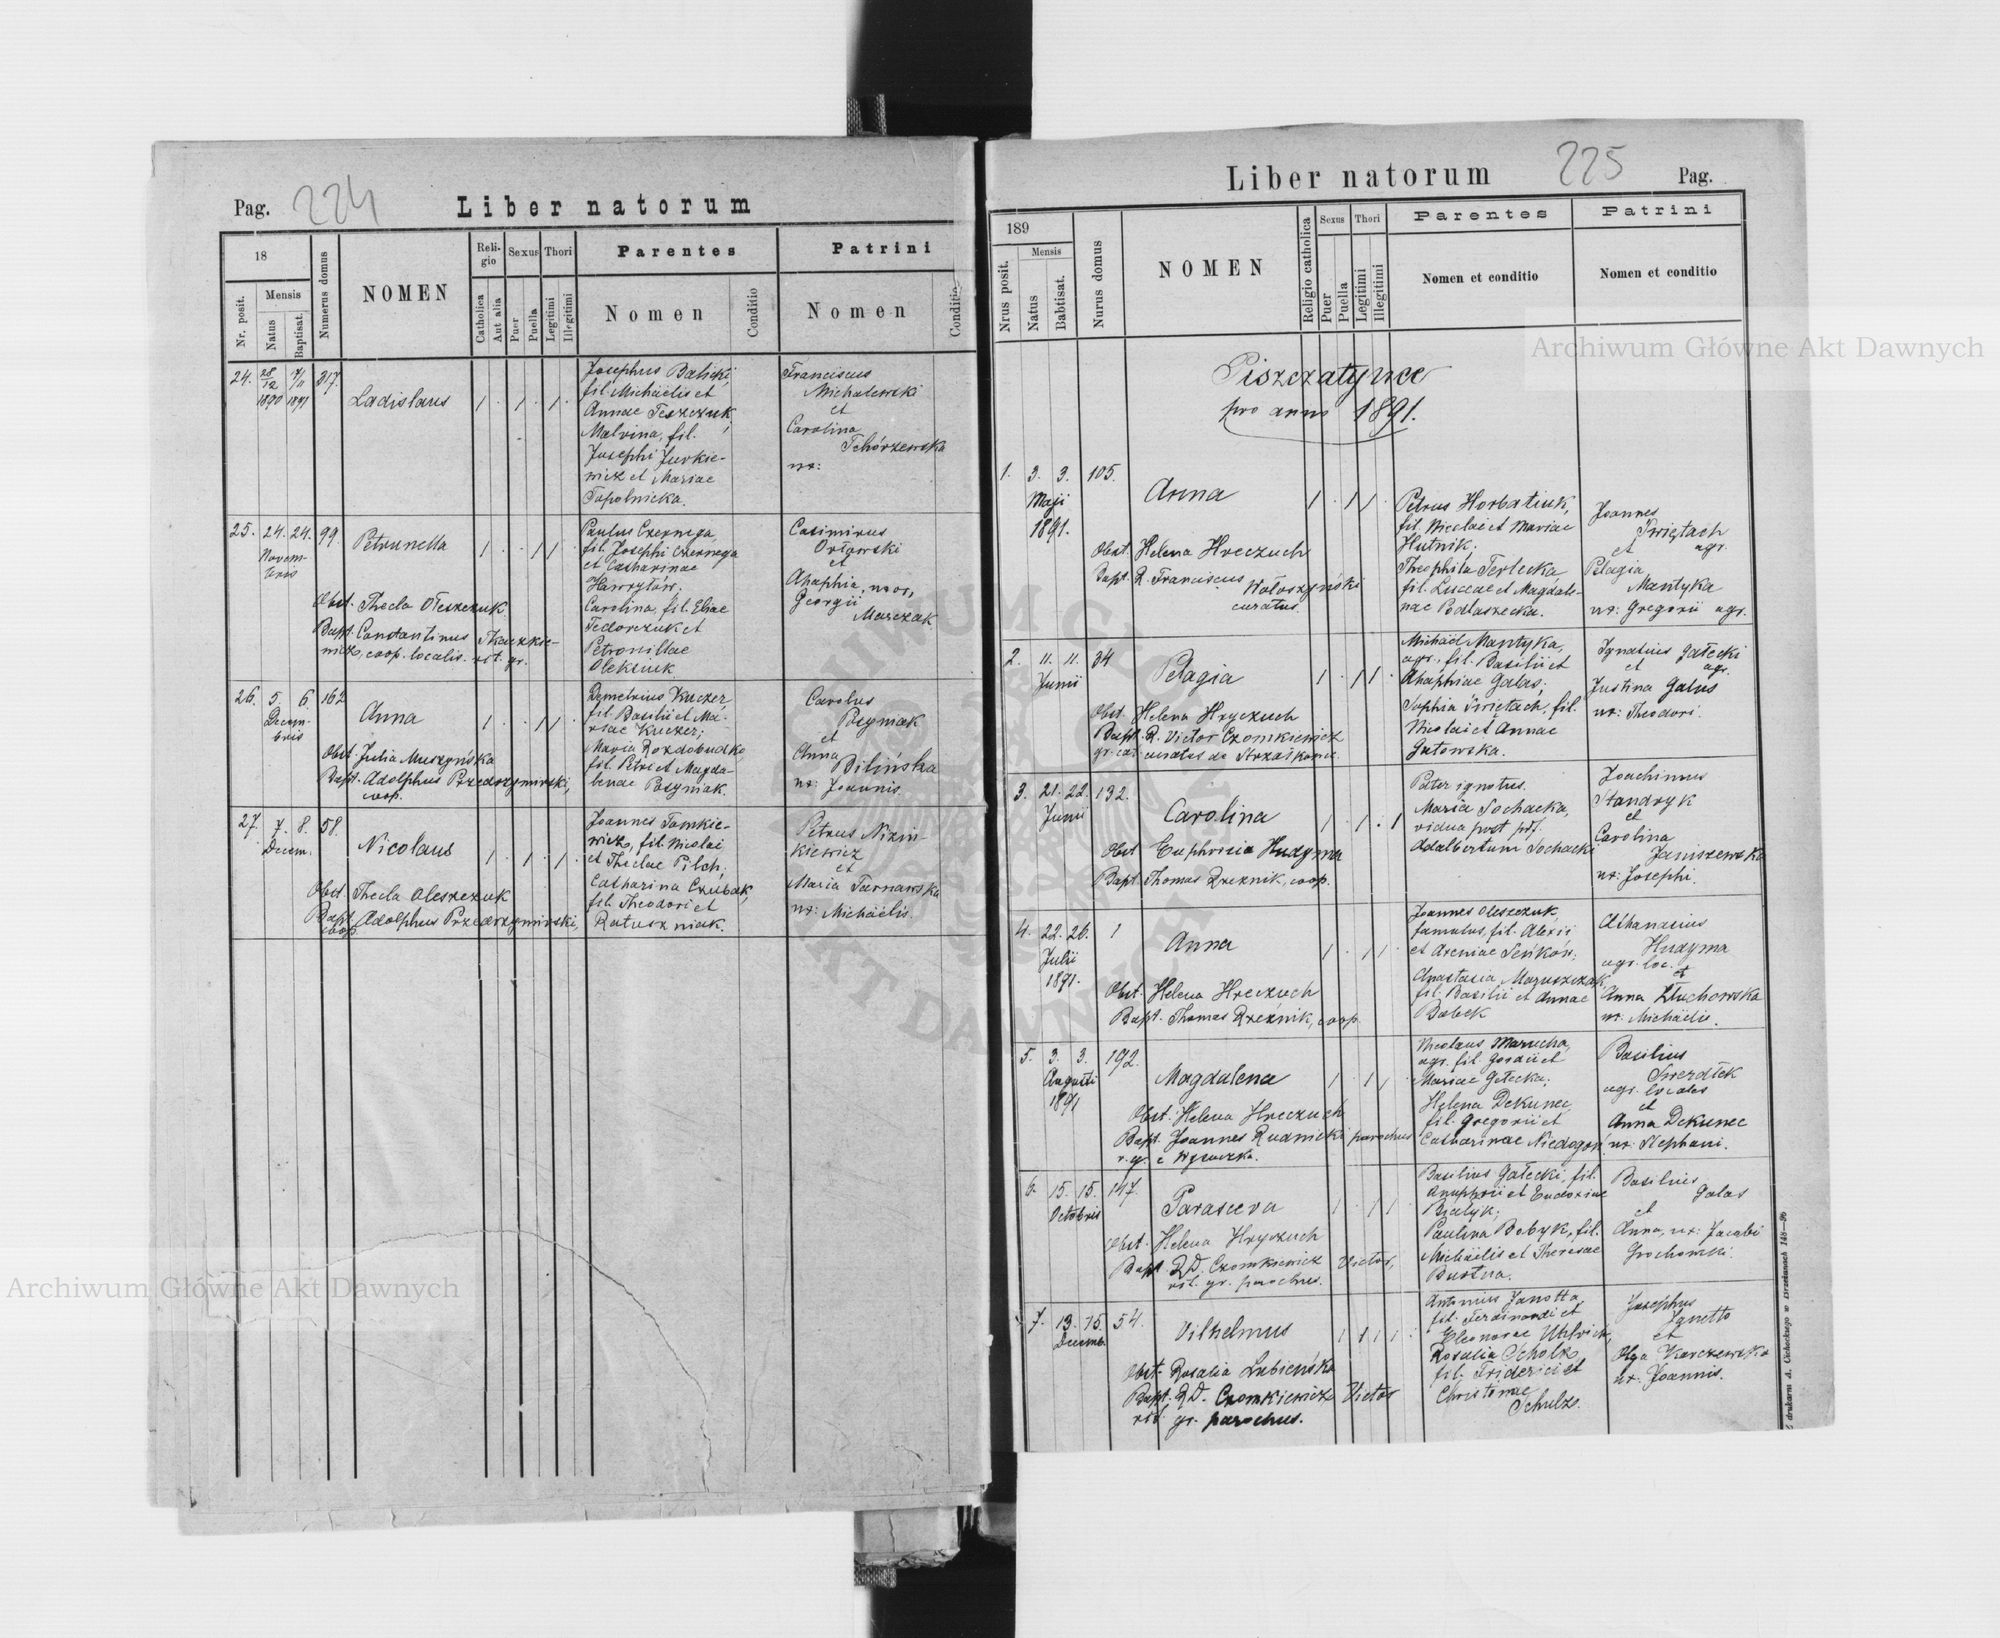 Pag. 224 Liber natorum
18
Nr. posit.
Mensis
Natus
Baptisat.
Numerus domus
NOMEN
Religio
Catholica
Aut alia
Sexus
Puer
Puella
Thori
Legitimi
Illegitimi
Parentes
Nomen
Conditio
Patrini
Nomen
Conditio
24. 28/12 1890 7/11 1891 317.
Ladislaus
Josephus Balicki,
fil. Michaëlis et
Annae Teszczuk;
Malvina, fil.
Josephi Jurkie-
wicz et Mariae
Topolnicka.
Franciscus
Michalewski
et
Carolina
Tchórzewska
ux:
25. 24. 24. 99.
Novem-
bris
Petrunella
Obst. Thecla Oleszczuk
Bapt. Constantinus Tkaczkie-
wicz, coop. localis. rit. gr.
Paulus Czernega,
fil. Josephi Czernega
et Catharinae
Hawryłów;
Carolina, fil. Eliae
Fedorczuk et
Petronillae
Oleksiuk.
Casimirus
Orłowski
et
Ahaphia, uxor,
Georgii
Marczak.
26. 5. 6. 162
Decem-
bris
Anna
Obst. Julia Muszyńska
Bapt. Adolphus Przedrzymirski,
coop.
Demetrius Kuczer
fil. Basilii et Ma-
riae Kuczer;
Maria Rozdobudko,
fil. Petri et Magda-
lenae Pszyniak.
Carolus
Pszyniak
et
Anna
Bilińska
ux: Joannis.
27. 7. 8. 58.
Decem.
Nicolaus
Obst. Thecla Oleszczuk
Bapt. Adolphus Przedrzymirski,
coop.
Joannes Tomkie-
wicz, fil. Nicolai
et Theclae Pilch;
Catharina Czubak,
fil. Theodori et
Ratuszniak.
Petrus Nizin-
kiewicz
et
Maria Tarnawska
ux: Michaëlis.
Liber natorum 225 Pag.
189
Nrus posit.
Mensis
Natus
Babtisat.
Nurus domus
NOMEN
Religio catholica
Sexus
Puer
Puella
Thori
Legitimi
Illegitimi
Parentes
Nomen et conditio
Patrini
Nomen et conditio
Piszczatyńce
pro anno 1891.
1. 3. 3. 105.
Maji
1891.
Anna
Obst. Helena Hreczuch
Bapt. R. Franciscus Wołoszyński
curatus.
Petrus Horbatiuk,
fil. Nicolai et Mariae
Hutnik;
Theophila Terlecka
fil. Lucae et Magdale-
nae Podlaszecka.
Joannes
Świętach
et agr.
Pelagia
Mantyka
ux: Gregorii agr.
2. 11. 11. 34
Junii
Pelagia
Obst. Helena Hryczuch
Bapt. R. Victor Czomkiewicz
gr. cat. curatus de Strzałkowce.
Michaël Mantyka,
agr., fil. Basilii et
Ahaphiae Galas;
Sophia Świętach, fil.
Nicolai et Annae
Gutowska.
Ignatius Gałecki
et agr.
Justina Galus
ux: Theodori.
3. 21. 22. 132.
Junii
Carolina
Obst Euphrosia Hudyma
Bapt. Thomas Rzeznik, coop.
Pater ignotus.
Maria Sochacka,
vidua post pdf.
Adalbertum Sochacki
Joachimus
Standryk
et
Carolina
Janiszewska
ux: Josephi.
4. 22. 26. 1
Julii
1891.
Anna
Obst. Helena Hreczuch
Bapt. Thomas Rzeźnik, coop.
Joannes Oleszczuk,
famulus, fil. Alexii
et Axeniae Seńków;
Anastasia Maruszczak,
fil. Basilii et Annae
Babek
Athanasius
Hudyma
agr. loc.
et
Anna Dłuchowska
ux: Michaëlis.
5. 3. 3. 192.
Augusti
1891
Magdalena
Obst. Helena Hreczuch
Bapt. Joannes Rudnicki parochus
r. g. e Wysuczka.
Nicolaus Marucha,
agr. fil. Gordii et
Mariae Gołecka;
Helena Dekunec,
fil. Gregorii et
Catharinae
Basilius
Swerdłek
agr. locales
et
Anna Dekunec
ux: Stephani.
6. 15. 15. 147.
Octobris
Parasceva
Obst. Helena Hryczuch
Bapt. RD. Czomkiewicz Victor,
rit. gr. parochus.
Basilius Gałecki, fil.
Onuphrii et Eudoxiae
Białyk;
Paulina Bobyk, fil.
Michaëlis et Theresae
Basilius
Galas
et
Anna, ux: Jacobi
Grochowski.
7. 13. 15. 54.
Decemb.
Vilhelmus
Obst. Rosalia Lubieńska
Bapt. RD. Czomkiewicz Victor
rit. gr. parochus.
Antonius Janotta,
fil. Ferdinandi et
Eleonorae Uhlrich,
Rosalia Scholz,
fil. Friderici et
Christinae
Schulz.
Josephus
Janotto
et
Olga Karczewska
ux: Joannis.
Z drukarni A. Cichockiego w Brzeżanach 148—96
Archiwum Główne Akt Dawnych
Archiwum Główne Akt Dawnych